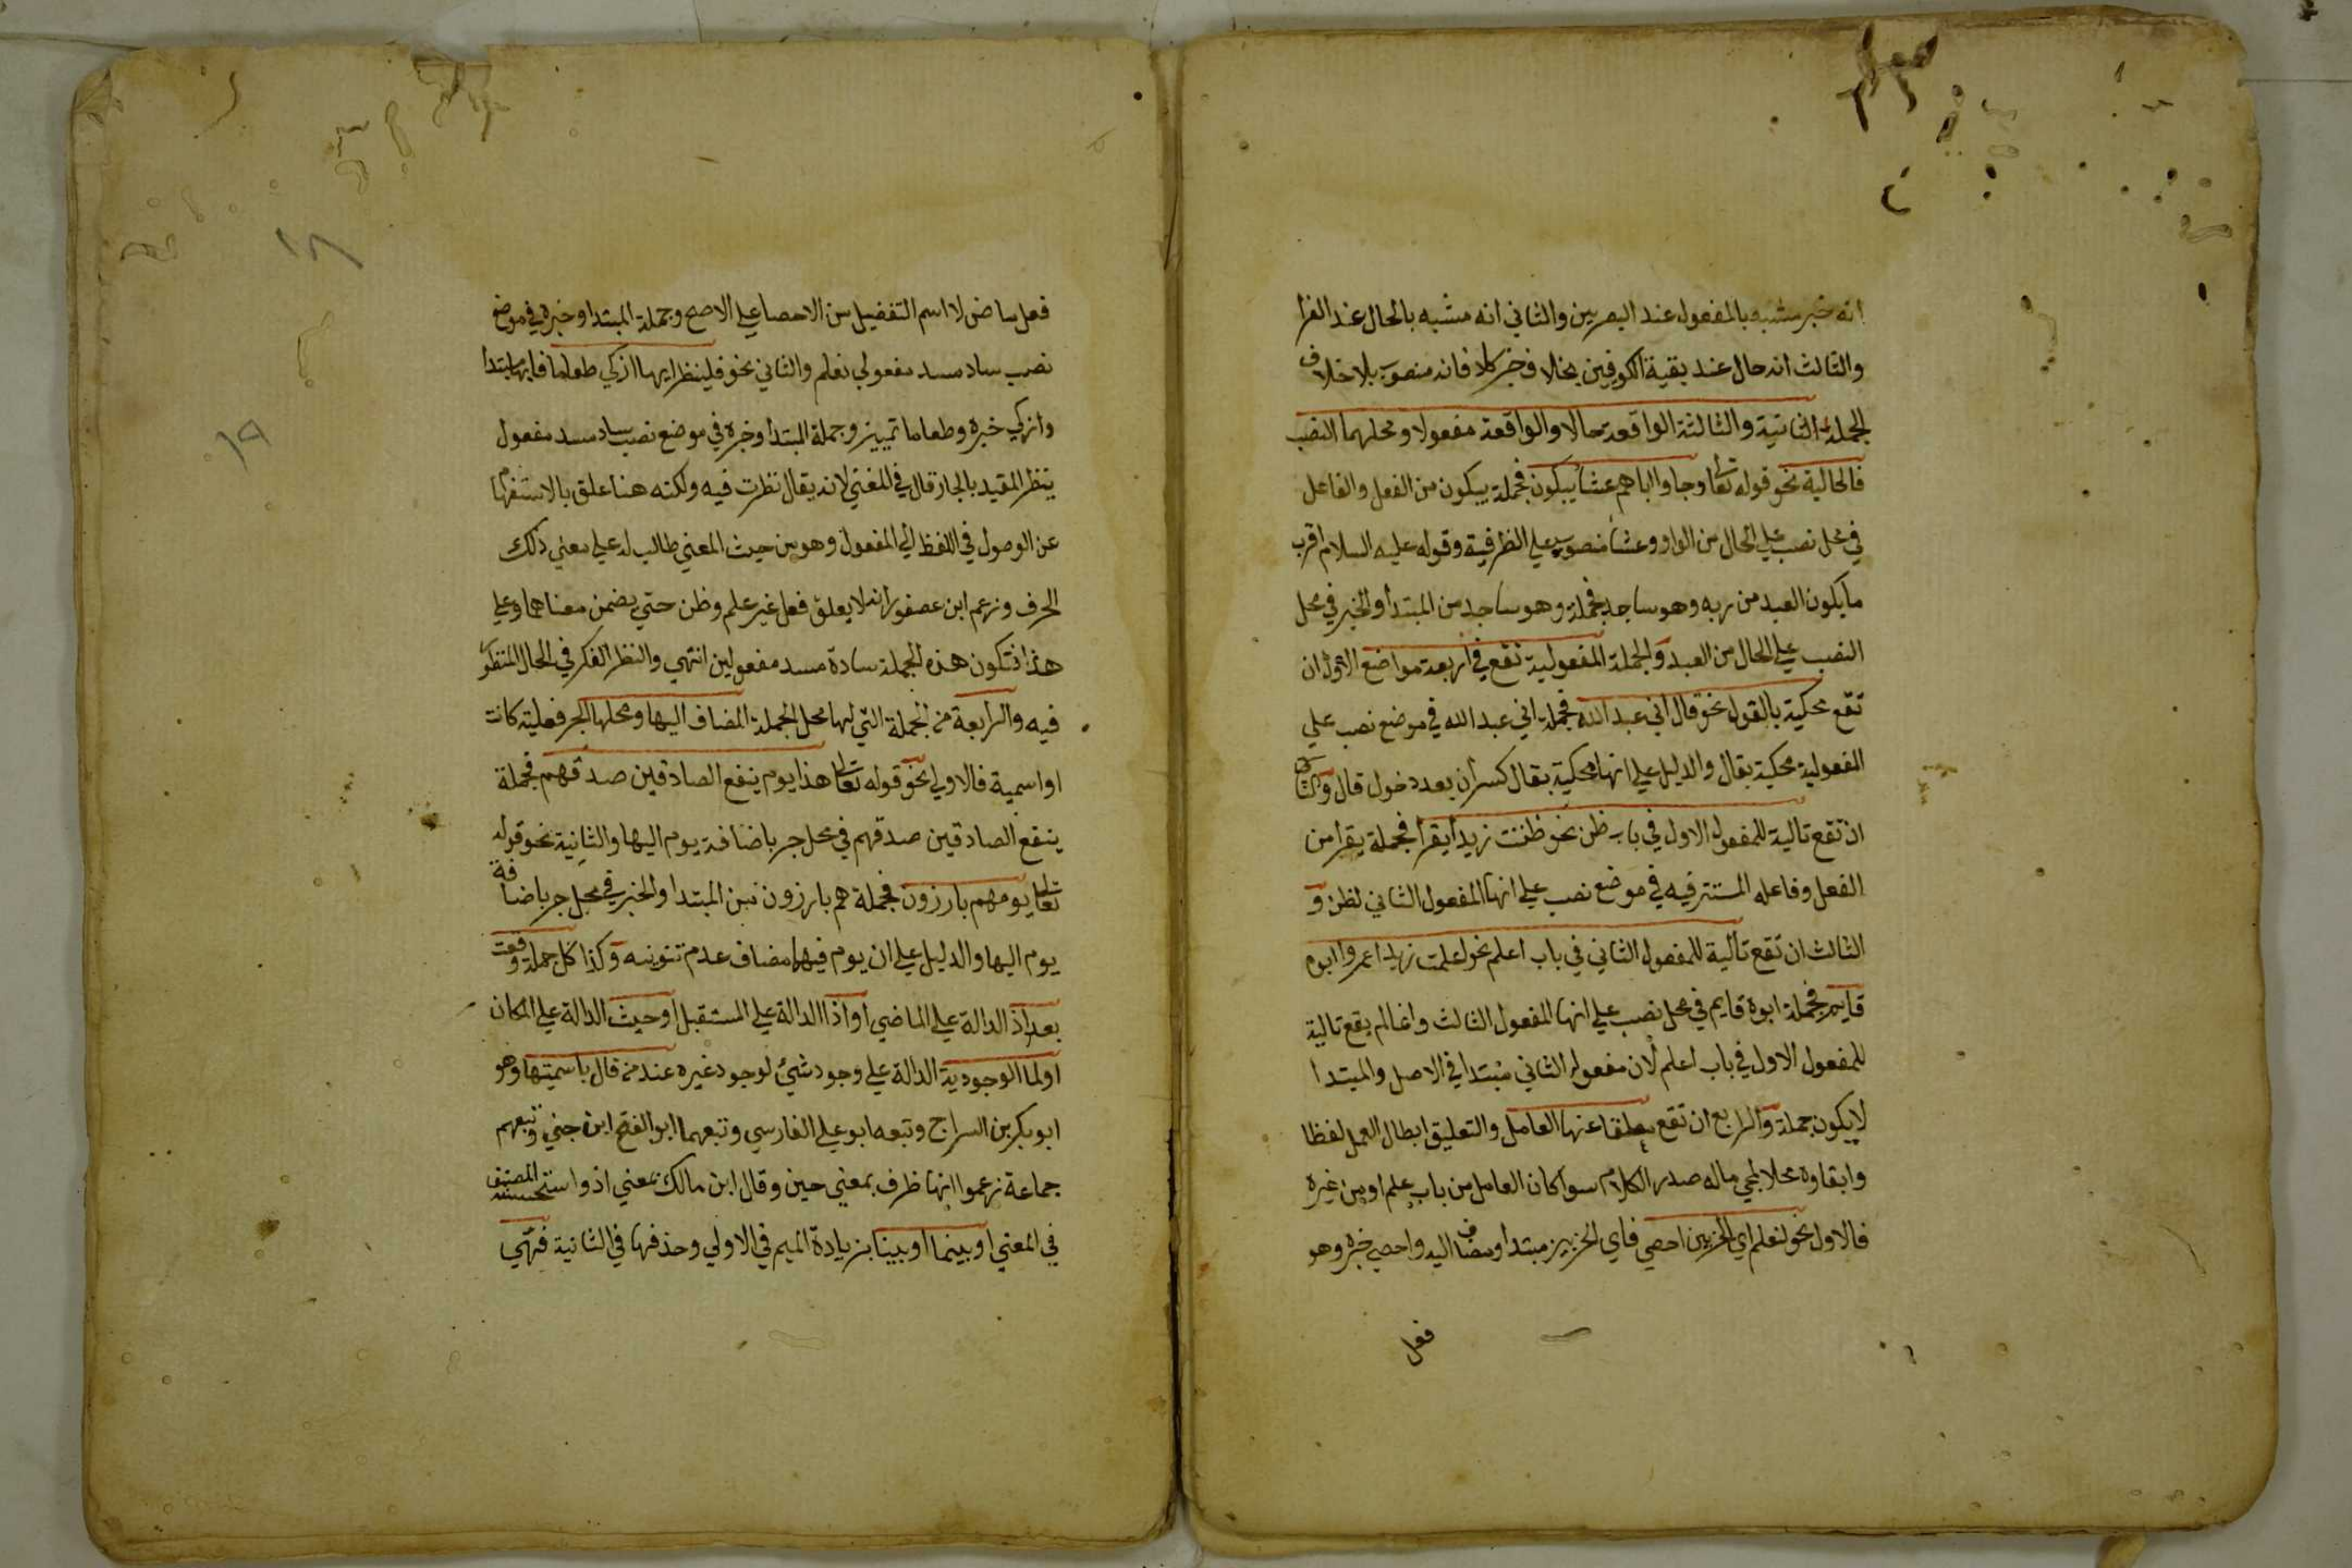 انه خبر مشبه بالمفعول عند البصريين والثاني انه مشبه بالحال عند الفرا
والثالث انه حال عند بقية الكوفيين بخلاف خبر كاد فانه منصوب بلا خلاف
الجملة الثانية والثالثة الواقعة حالا والواقعة مفعولا ومحلهما النصب
فالحالية نحو قوله تعالى وجاوا اباهم عشا يبكون فجملة يبكون من الفعل والفاعل
في محل نصب علي الحال من الواو وعشا منصوب علي الظرفية وقوله عليه السلام اقرب
ما يكون العبد من ربه وهو ساجد فجملة وهو ساجد من المبتدا والخبر في محل
النصب علي الحال من العبد والجملة المفعولية تقع في اربعة مواضع الاول ان
تقع محكية بالقول نحو قال اني عبد الله فجملة اني عبد الله في موضع نصب علي
المفعولية محكية بقال والدليل علي انها محكية بقال كسر ان بعد دخول قال والثاني
ان تقع تالية للمفعول الاول في باب ظن نحو ظننت زيدا يقرا فجملة يقرا من
الفعل وفاعله المستتر فيه في موضع نصب علي انها المفعول الثاني لظن و
الثالث ان تقع تالية للمفعول الثاني في باب اعلم نحو اعلمت زيدا عمروا ابوه
قايم فجملة ابوه قايم في محل نصب علي انها المفعول الثالث وانما لم يقع تالية
للمفعول الاول في باب اعلم لان مفعوله الثاني مبتدا في الاصل والمبتدا
لا يكون جملة والرابع ان تقع معلقا عنها العامل والتعليق ابطال العمل لفظا
وابقاوه محلا لمجي ماله صدر الكلام سوا كان العامل من باب علم او من غيره
فالاول نحو لنعلم اي الحزبين احصي فاي الحزبين مبتدا ومضاف اليه واحصي خبره وهو
فعل
١٨
١٩
فعل ماض لا اسم التفضيل من الاحصا علي الاصح وجملة المبتدا وخبره في موضع
نصب ساد مسد مفعولي نعلم والثاني نحو فلينظر ايها ازكي طعاما فايها مبتدا
وازكي خبره وطعاما تمييز وجملة المبتدا وخبره في موضع نصب ساد مسد مفعول
ينظر المقيد بالجار قال في المغني لانه يقال نظرت فيه ولكنه هنا علق بالاستفهام
عن الوصول في اللفظ الي المفعول وهو من حيث المعني طالب له علي معني ذلك
الحرف وزعم ابن عصفور انه لا يعلق فعل غير علم وظن حتي يضمن معناهما وعلي
هذا فتكون هذه الجملة سادة مسد مفعولين انتهي والنظر الفكر في الحال المنظور
فيه والرابعة من الجملة التي لها محل الجملة المضاف اليها ومحلها الجر فعلية كانت
او اسمية فالاولي نحو قوله تعالى هذا يوم ينفع الصادقين صدقهم فجملة
ينفع الصادقين صدقهم في محل جر باضافة يوم اليها والثانية نحو قوله
تعالى يوم هم بارزون فجملة هم بارزون من المبتدا والخبر في محل جر باضافة
يوم اليها والدليل علي ان يوم فيهما مضاف عدم تنوينه وكذا كل جملة وقعت
بعد اذ الدالة علي الماضي او اذا الدالة علي المستقبل او حيث الدالة علي المكان
او لما الوجودية الدالة علي وجود شيئ لوجود غيره عند من قال باسميتها وهو
ابو بكر بن السراج وتبعه ابو علي الفارسي وتبعهما ابو الفتح ابن جني وتبعهم
جماعة زعموا انها ظرف بمعني حين وقال ابن مالك بمعني اذ واستحسنه المصنف
في المغني او بينما او بينا بزيادة الميم في الاولي وحذفها في الثانية فهي